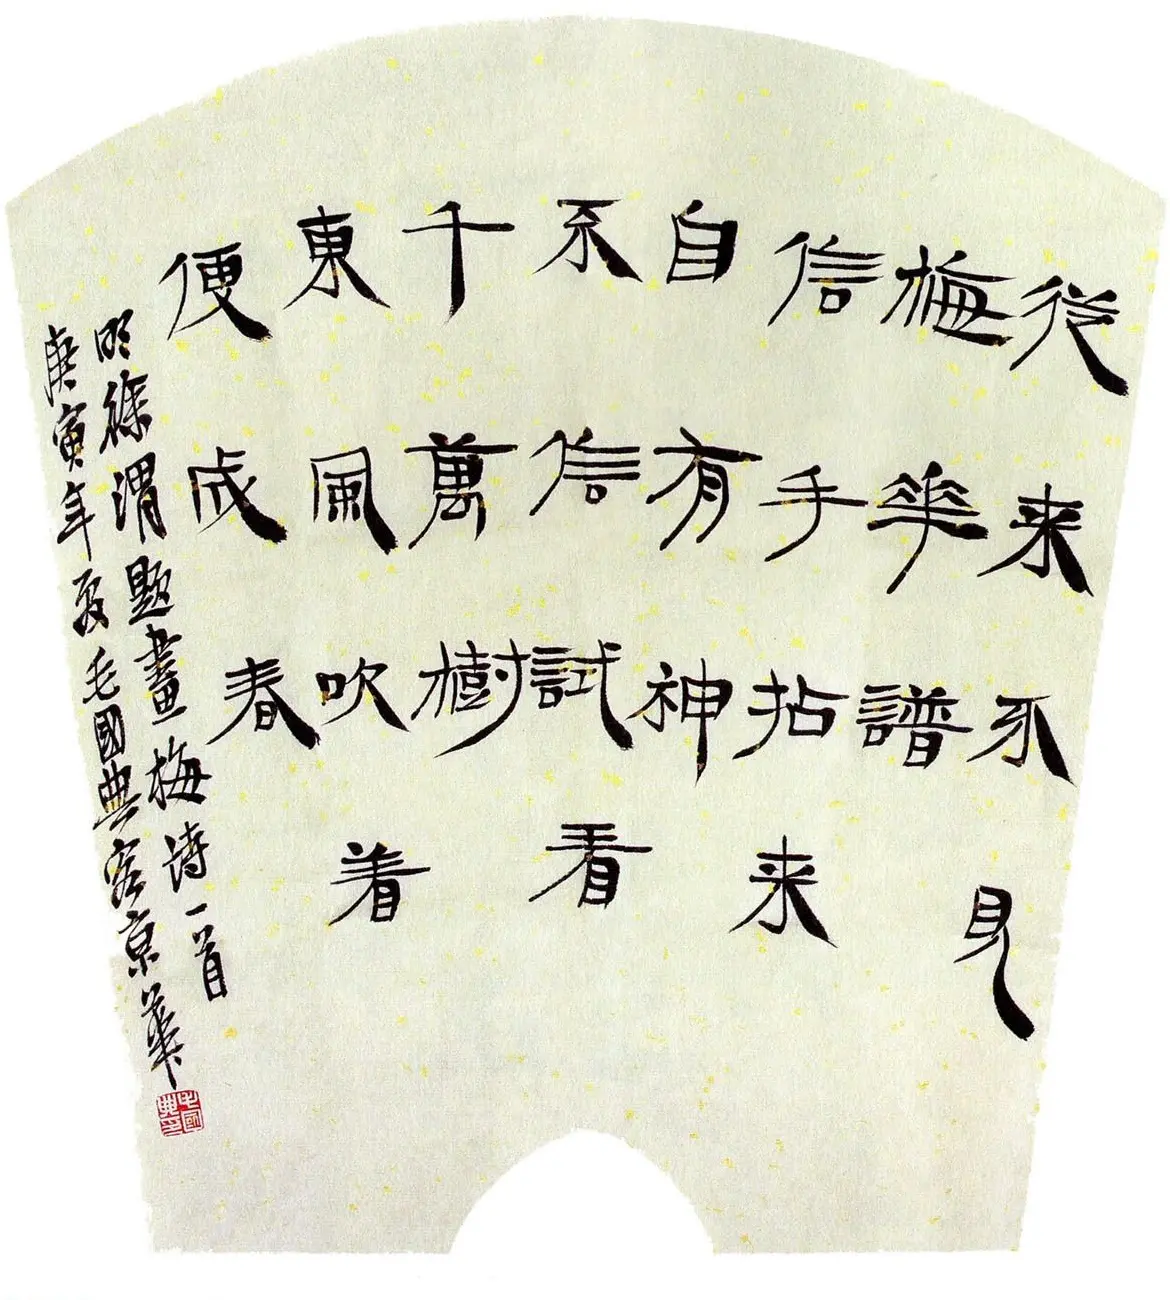 從来不見
梅華譜
信手拈来
自有神
不信試看
千萬樹
東風吹着
便成春
明徐渭題畫梅诗一首
庚寅年夏毛國典客京華
毛國典印